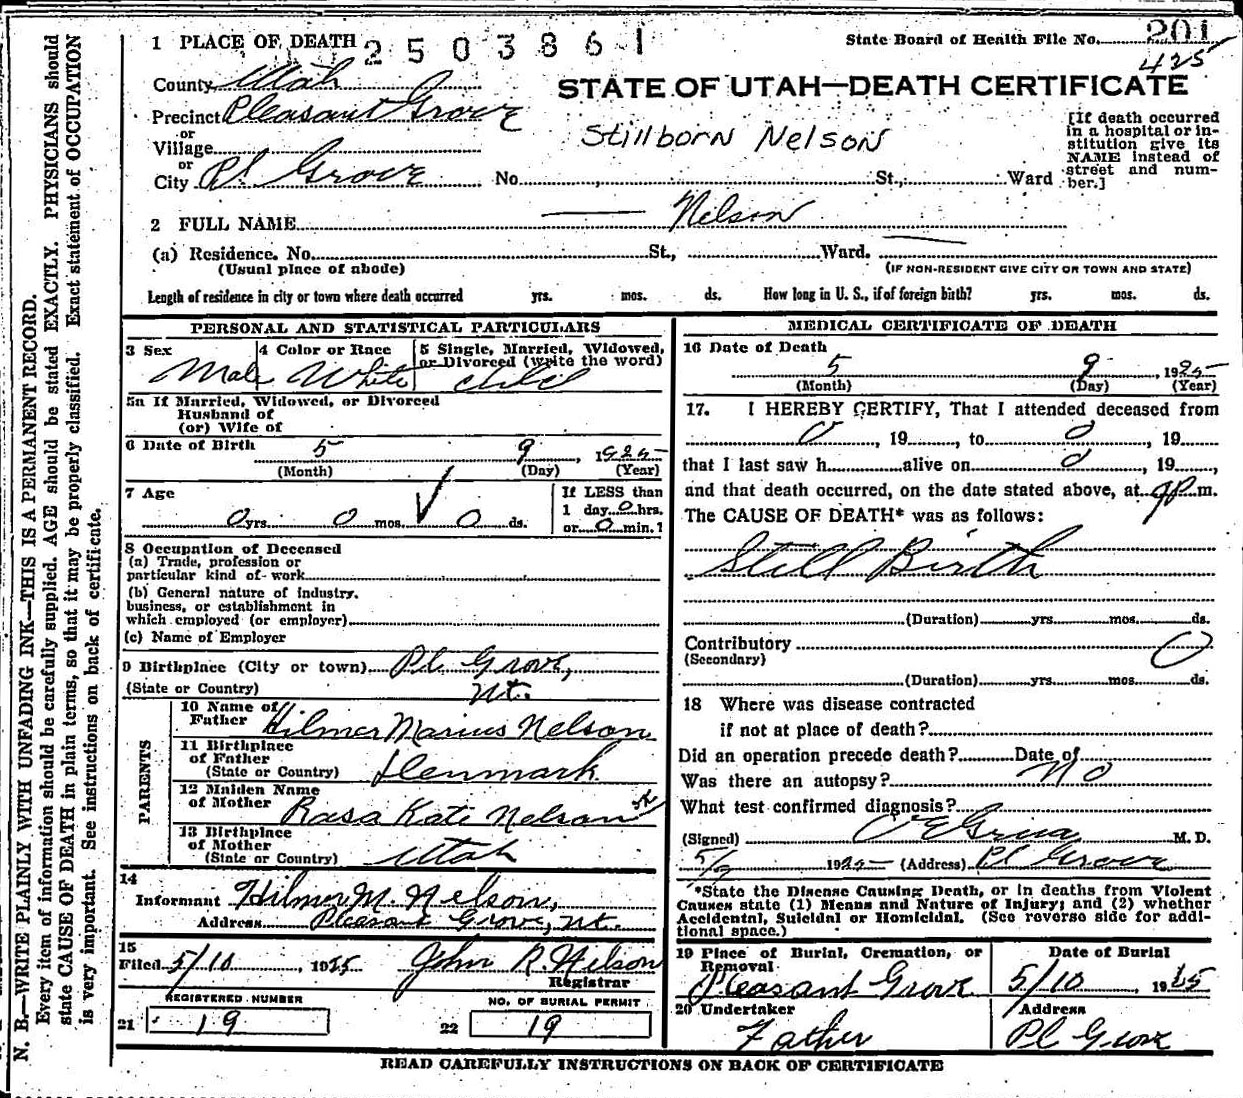 N. B.—WRITE PLAINLY WITH UNFADING INK—THIS IS A PERMANENT RECORD.
Every item of information should be carefully supplied. AGE should be stated EXACTLY. PHYSICIANS should
state CAUSE OF DEATH in plain terms, so that it may be properly classified. Exact statement of OCCUPATION
is very important. See instructions on back of certificate.
1 PLACE OF DEATH 2503861
State Board of Health File No. 201
425
County Utah
STATE OF UTAH—DEATH CERTIFICATE
Precinct Pleasant Grove
or
Village
or
City Pl Grove No. St., Ward
Stillborn Nelson
[If death occurred
in a hospital or in-
stitution give its
NAME instead of
street and num-
ber.]
2 FULL NAME — Nelson
(a) Residence. No. St., Ward. —
(Usual place of abode) (IF NON-RESIDENT GIVE CITY OR TOWN AND STATE)
Length of residence in city or town where death occurred yrs. mos. ds. How long in U. S., if of foreign birth? yrs. mos. ds.
PERSONAL AND STATISTICAL PARTICULARS
3 Sex 4 Color or Race 5 Single, Married, Widowed,
or Divorced (write the word)
Male White child
5a If Married, Widowed, or Divorced
Husband of
(or) Wife of
6 Date of Birth 5 9, 1925
(Month) (Day) (Year)
7 Age If LESS than
1 day 0 hrs.
0 yrs. 0 mos. 0 ds. or 0 min.?
8 Occupation of Deceased
(a) Trade, profession or
particular kind of work
(b) General nature of industry,
business, or establishment in
which employed (or employer)
(c) Name of Employer
9 Birthplace (City or town) Pl Grove,
(State or Country) Ut.
PARENTS
10 Name of
Father Hilmer Marius Nelson
11 Birthplace
of Father
(State or Country) Denmark
12 Maiden Name
of Mother Rosa Kate Nelson
13 Birthplace
of Mother
(State or Country) Utah
14
Informant Hilmer M. Nelson,
Address Pleasant Grove, Ut.
15
Filed 5/10, 1925 John R. Wilson
Registrar
REGISTERED NUMBER NO. OF BURIAL PERMIT
21 19 22 19
MEDICAL CERTIFICATE OF DEATH
16 Date of Death
5 9, 1925
(Month) (Day) (Year)
17. I HEREBY CERTIFY, That I attended deceased from
0, 19, to 0, 19
that I last saw h alive on 0, 19,
and that death occurred, on the date stated above, at 9P m.
The CAUSE OF DEATH* was as follows:
Still Birth
(Duration) yrs. mos. ds.
Contributory 0
(Secondary)
(Duration) yrs. mos. ds.
18 Where was disease contracted
if not at place of death?
Did an operation precede death? Date of
Was there an autopsy? No
What test confirmed diagnosis?
(Signed) M. D.
5/9 1925 (Address) Pl Grove
*State the Disease Causing Death, or in deaths from Violent
Causes state (1) Means and Nature of Injury; and (2) whether
Accidental, Suicidal or Homicidal. (See reverse side for addi-
tional space.)
19 Place of Burial, Cremation, or Date of Burial
Removal
Pleasant Grove 5/10 1925
20 Undertaker Address
Father Pl Grove
READ CAREFULLY INSTRUCTIONS ON BACK OF CERTIFICATE